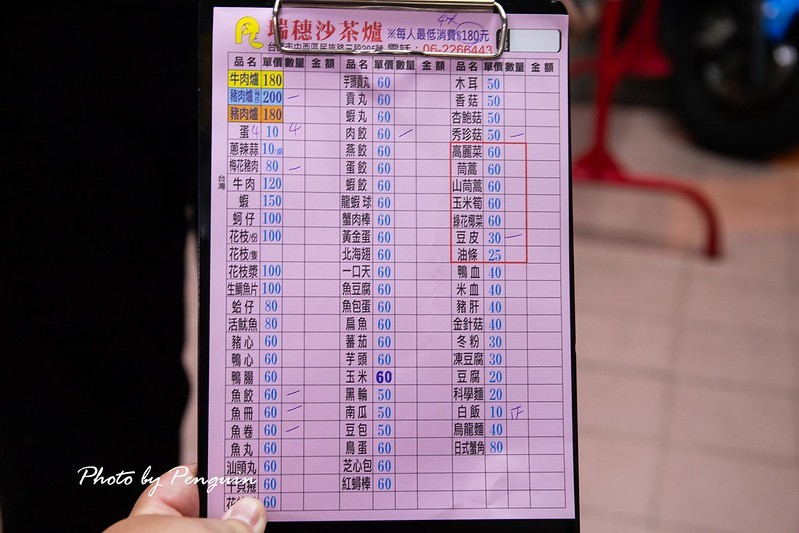 4大
瑞穗沙茶爐 ※每人最低消費$180元
台南市中西區民族路三段205號 電話:06-2266443
品名 單價 數量 金額 品名 單價 數量 金額 品名 單價 數量 金額
牛肉爐 180 芋頭貢丸 60 木耳 50
豬肉爐 200 一 貢丸 60 香菇 50
豬肉爐 180 蝦丸 60 杏鮑菇 50
蛋 4 10 4 肉餃 60 一 秀珍菇 50 一
蔥辣蒜 10/碟 燕餃 60 高麗菜 60
梅花豬肉 80 一 蛋餃 60 茼蒿 60
台灣 牛肉 120 蝦餃 60 山茼蒿 60
蝦 150 龍蝦球 60 玉米筍 60
蚵仔 100 蟹肉棒 60 綠花椰菜 60
花枝/份 100 黃金蛋 60 豆皮 30 一
花枝/隻 北海翅 60 油條 25
花枝漿 100 一口天 60 鴨血 40
生鯛魚片 100 魚豆腐 60 米血 40
蛤仔 80 魚包蛋 60 豬肝 40
活魷魚 80 扁魚 60 金針菇 40
豬心 60 蕃茄 60 冬粉 30
鴨心 60 芋頭 60 凍豆腐 30
鴨腸 60 玉米 60 豆腐 20
魚餃 60 一 黑輪 50 科學麵 20
魚冊 60 一 南瓜 50 白飯 10 正
魚卷 60 一 豆包 50 烏龍麵 40
魚丸 60 鳥蛋 60 日式蟹角 80
汕頭丸 60 芝心包 60
干貝冠 60 紅蟳棒 60
花枝 60
Photo by Penguin